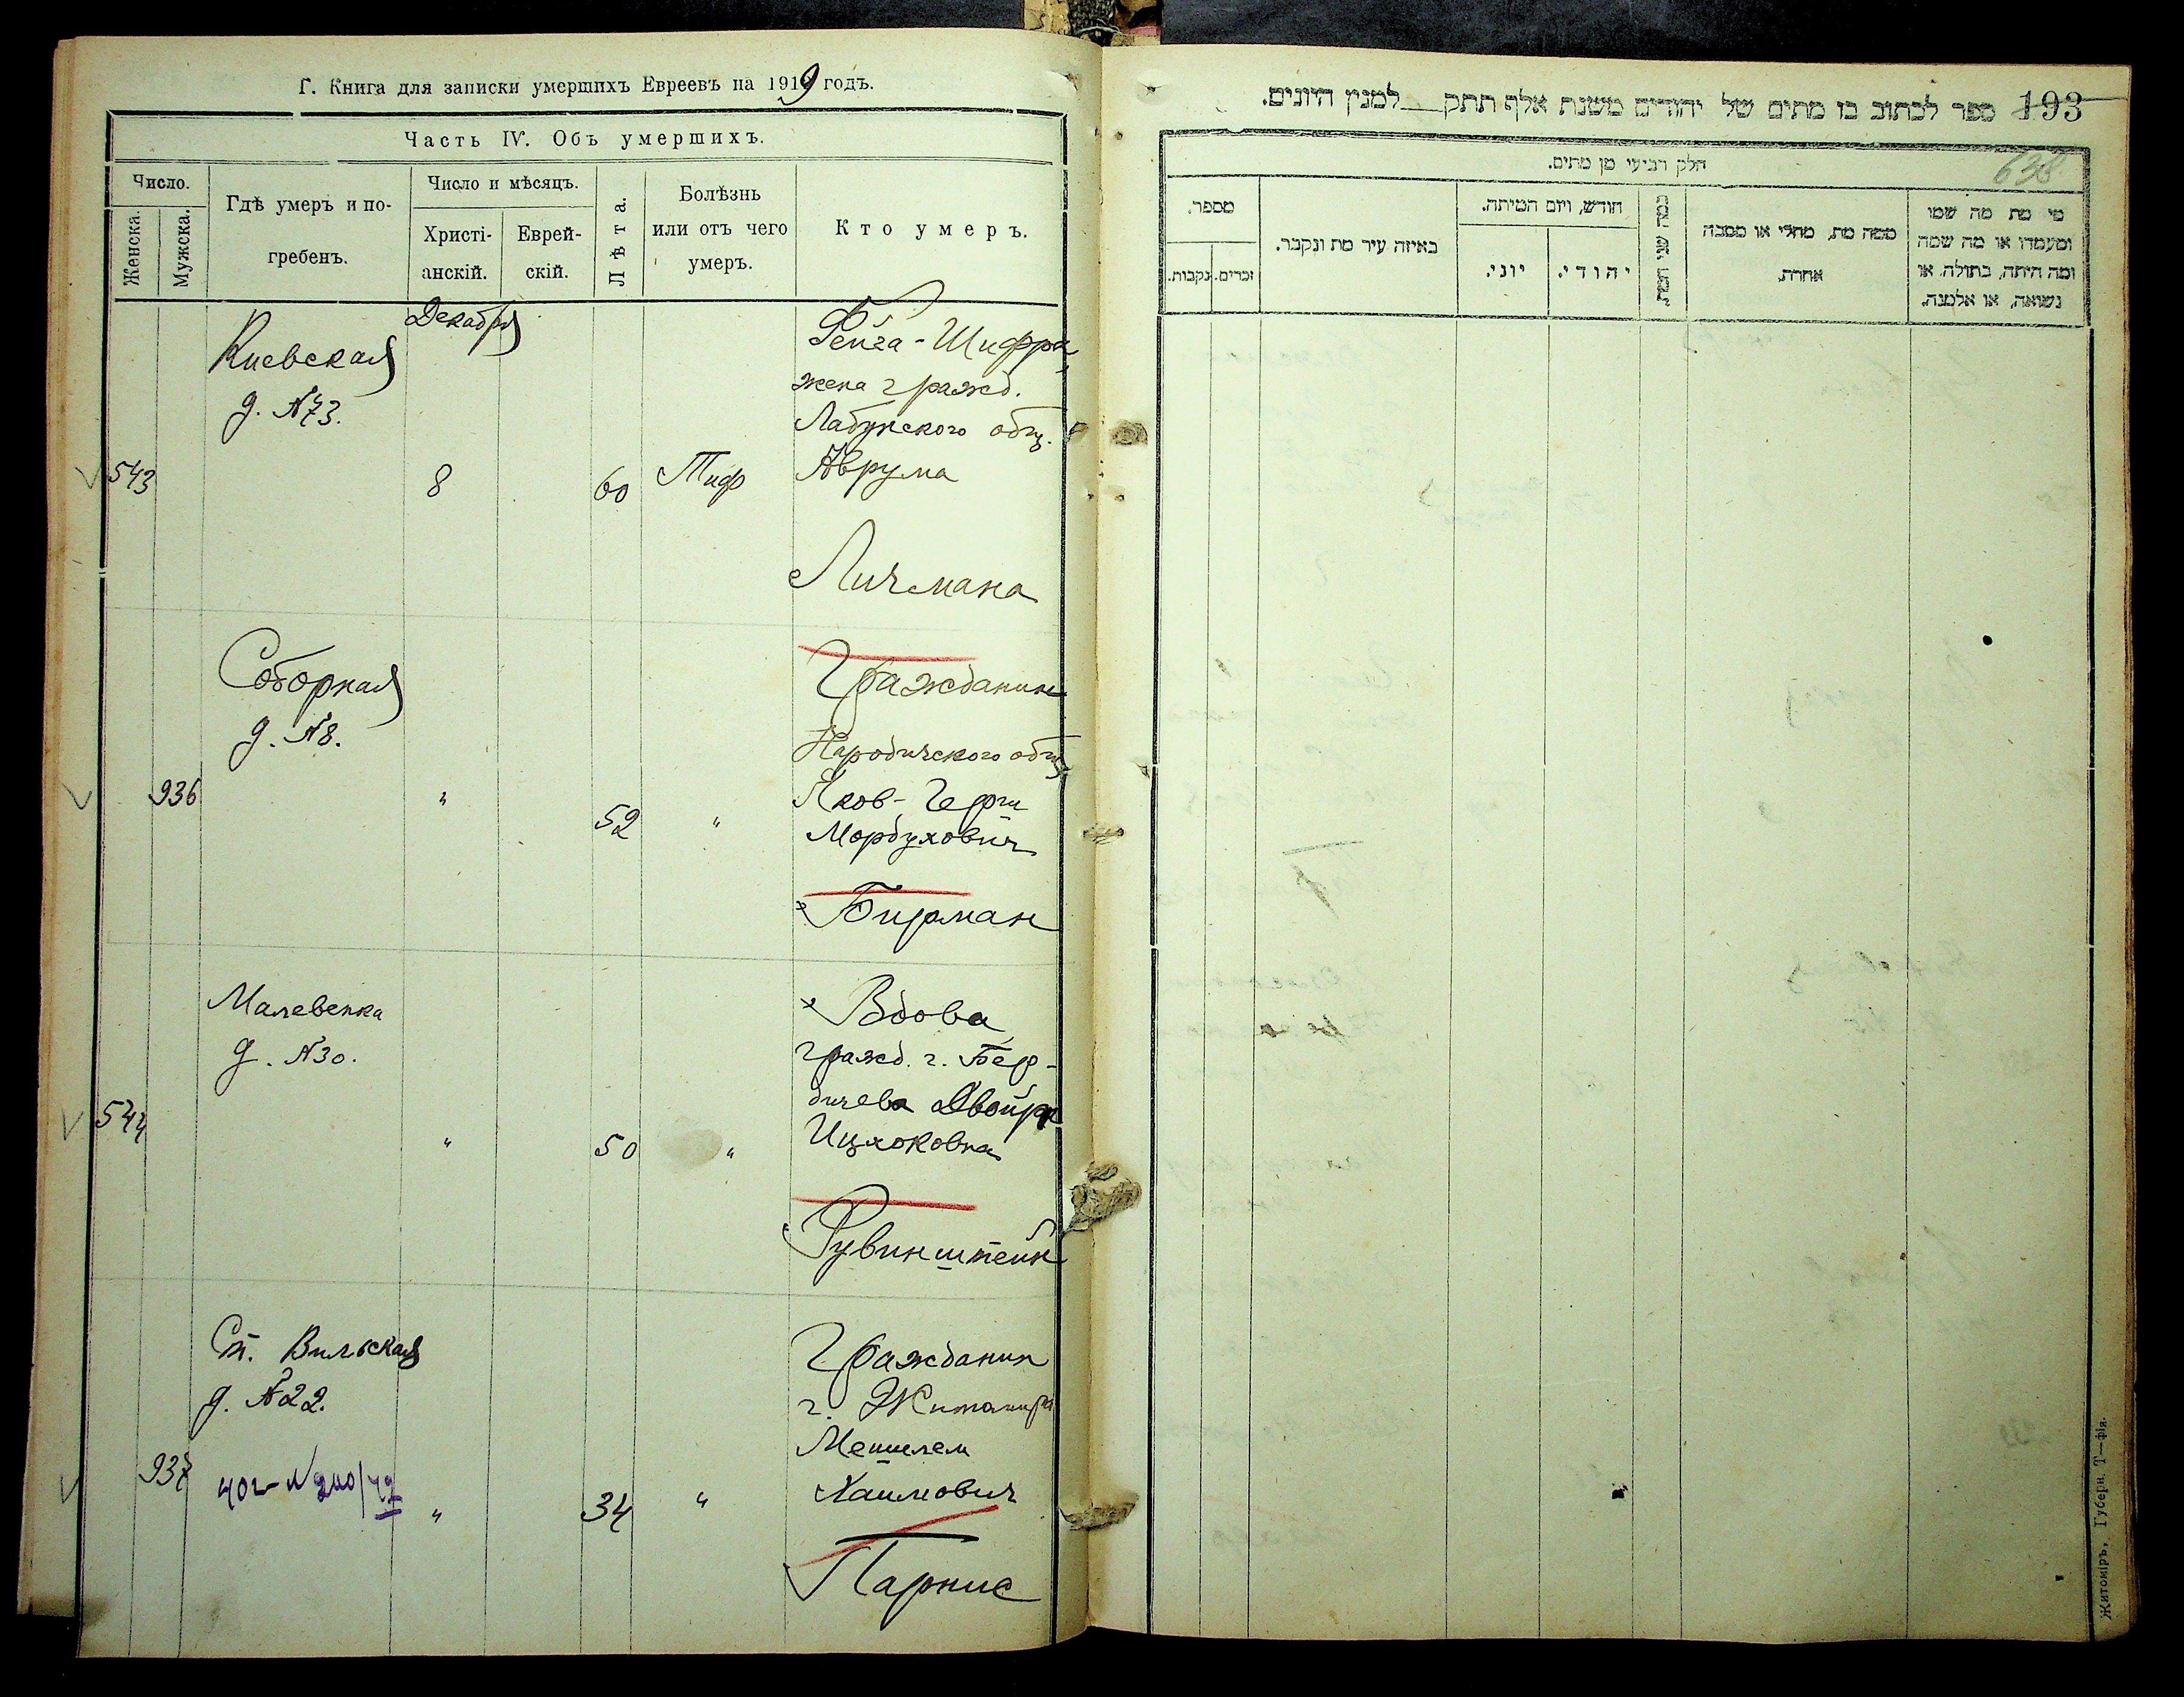 Г. Книга для записки умершихъ Евреевъ на 1919 годъ.
Часть IV. Объ умершихъ.
Число.
Женска.
Мужска.
Гдѣ умеръ и по-
гребенъ.
Число и мѣсяцъ.
Христі-
анскій.
Еврей-
скій.
Лѣта.
Болѣзнь
или отъ чего
умеръ.
Кто умеръ.
Декабря
Киевская
д. №73.
543
8
60
Тиф
Фейга-Шифра,
жена гражд.
Лабунского общ.
Аврума
Личмана
Соборная
д. №8.
936
"
52
"
Гражданин
Народичского общ.
Яков-Герш
Мордухович
Бирман
Малеванка
д. №30.
544
"
50
"
Вдова
гражд. г. Бер-
дичева Двойра
Ицхоковна
Рувинштейн
Ст. Вильская
д. №22.
937
"
34
"
Гражданин
г. Житомира
Мешилем
Хаимович
Парнис
193
ספר לכתוב בו מתים של יהודים משנת אלף תתק למנין היונים.
638
חלק רביעי מן מתים.
מספר.
נקבות.
זכרים.
באיזה עיר מת ונקבר.
חודש, ויום המיתה.
יוני.
יהודי.
כמה שני המת.
ממה מת, מחלי או מסבה
אחרת.
מי מת מה שמו
ומעמדו או מה שמה
ומה היתה, בתולה או
נשואה, או אלמנה.
Житоміръ, Губерн. Т—фія.